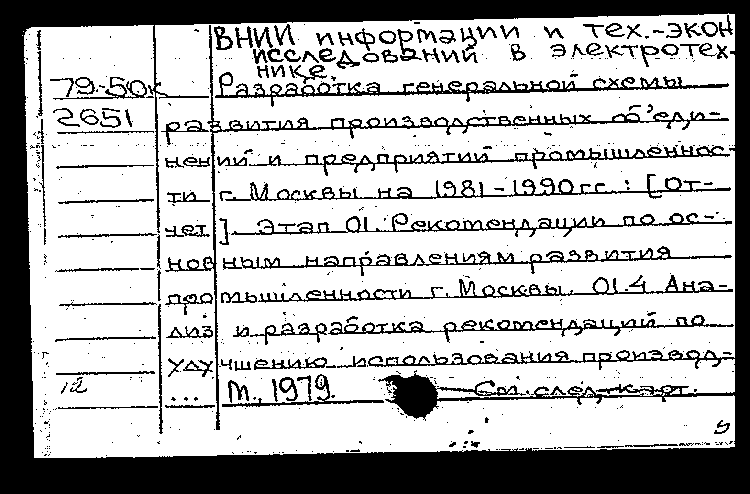 ВНИИ информации и тех.-экон
исследований в электротех-
нике.
79-50к Разработка генеральной схемы
2651 развития производственных об'еди-
нений и предприятий промышленнос-
ти г. Москвы на 1981-1990гг.: [От-
чет]. Этап 01. Рекомендации по ос-
новным направлениям развития
промышленности г. Москвы. 01.4 Ана-
лиз и разработка рекомендаций по
улучшению использования производ-
12 ... М., 1979. См. след. карт.